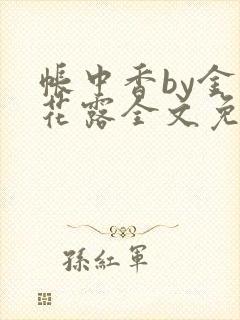 帳中香by金
花露全文免
孫紅軍